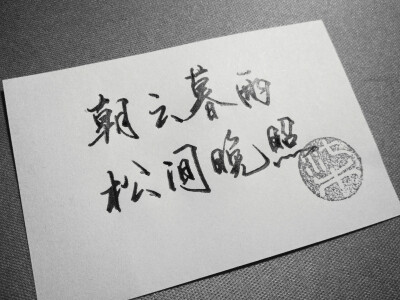 朝云暮雨
松间晚照